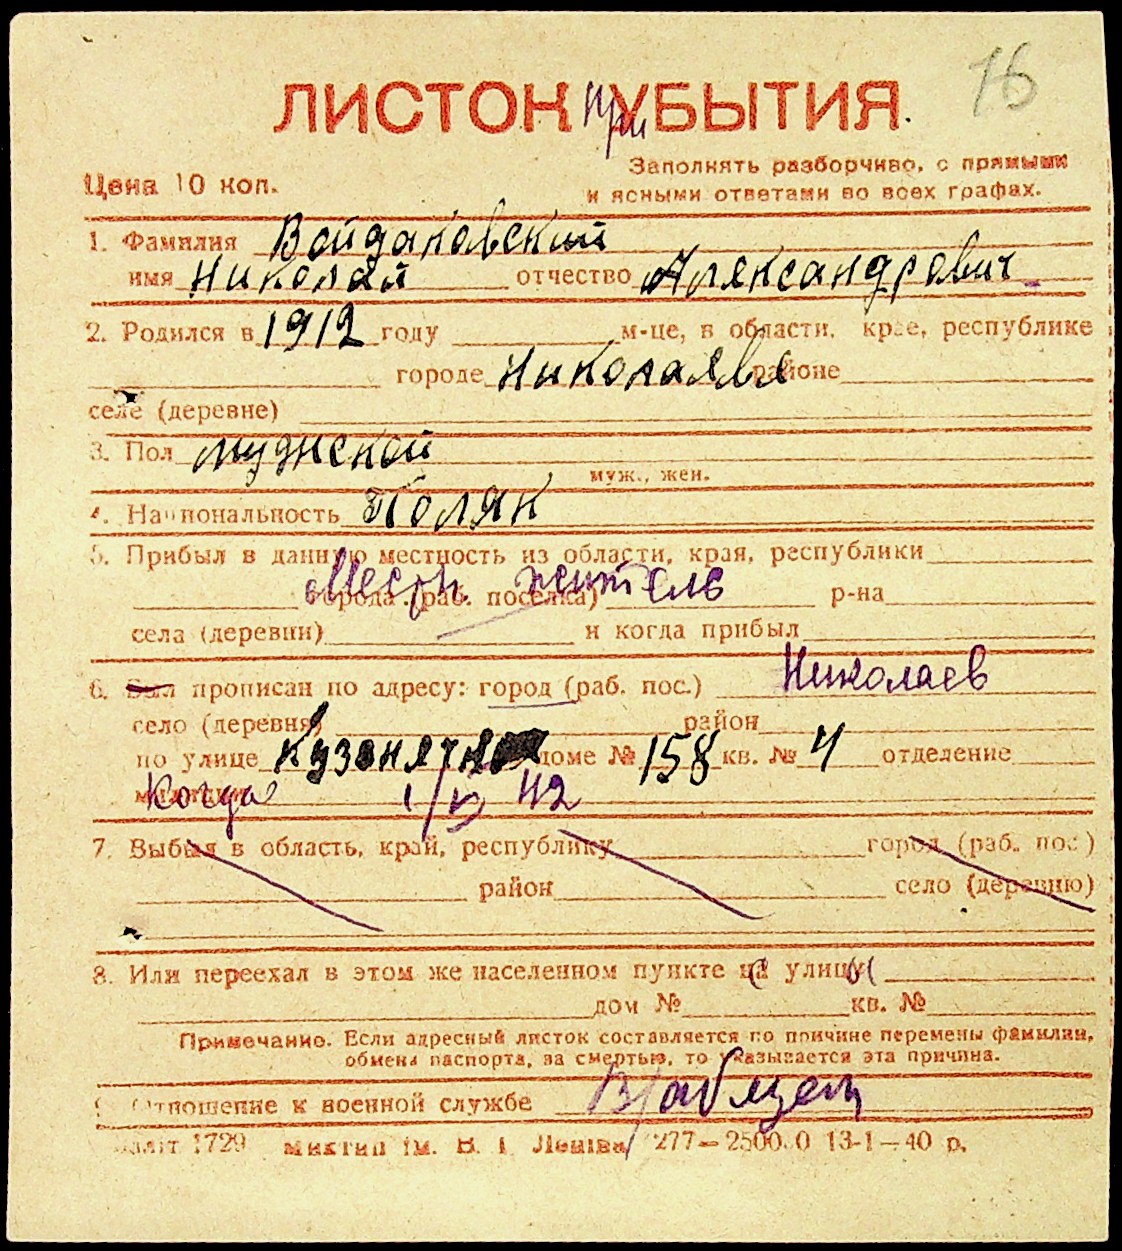 76
ЛИСТОК при УБЫТИЯ.
Заполнять разборчиво, с прямыми
Цена 10 коп.
и ясными ответами во всех графах.
1. Фамилия Войдаковский
имя Николай отчество Александрович
2. Родился в 1912 году м-це, в области, крае, республике
городе Николаеве районе
селе (деревне)
3. Пол мужской
муж., жен.
4. Национальность Поляк
5. Прибыл в данную местность из области, края, республики
Местн. житель
города (раб. поселка) р-на
села (деревни) и когда прибыл
6. Был прописан по адресу: город (раб. пос.) Николаев
село (деревня) район
по улице Кузнечная доме № 158 кв. № 4 отделение
Когда 1/IV 42
7. Выбыл в область, край, республику город (раб. пос.)
район село (деревню)
8. Или переехал в этом же населенном пункте на улицу
дом № кв. №
Примечание. Если адресный листок составляется по причине перемены фамилии,
обмена паспорта, за смертью, то указывается эта причина.
9. Отношение к военной службе
1729 им. В. І. Леніна 277—13-1—40 р.